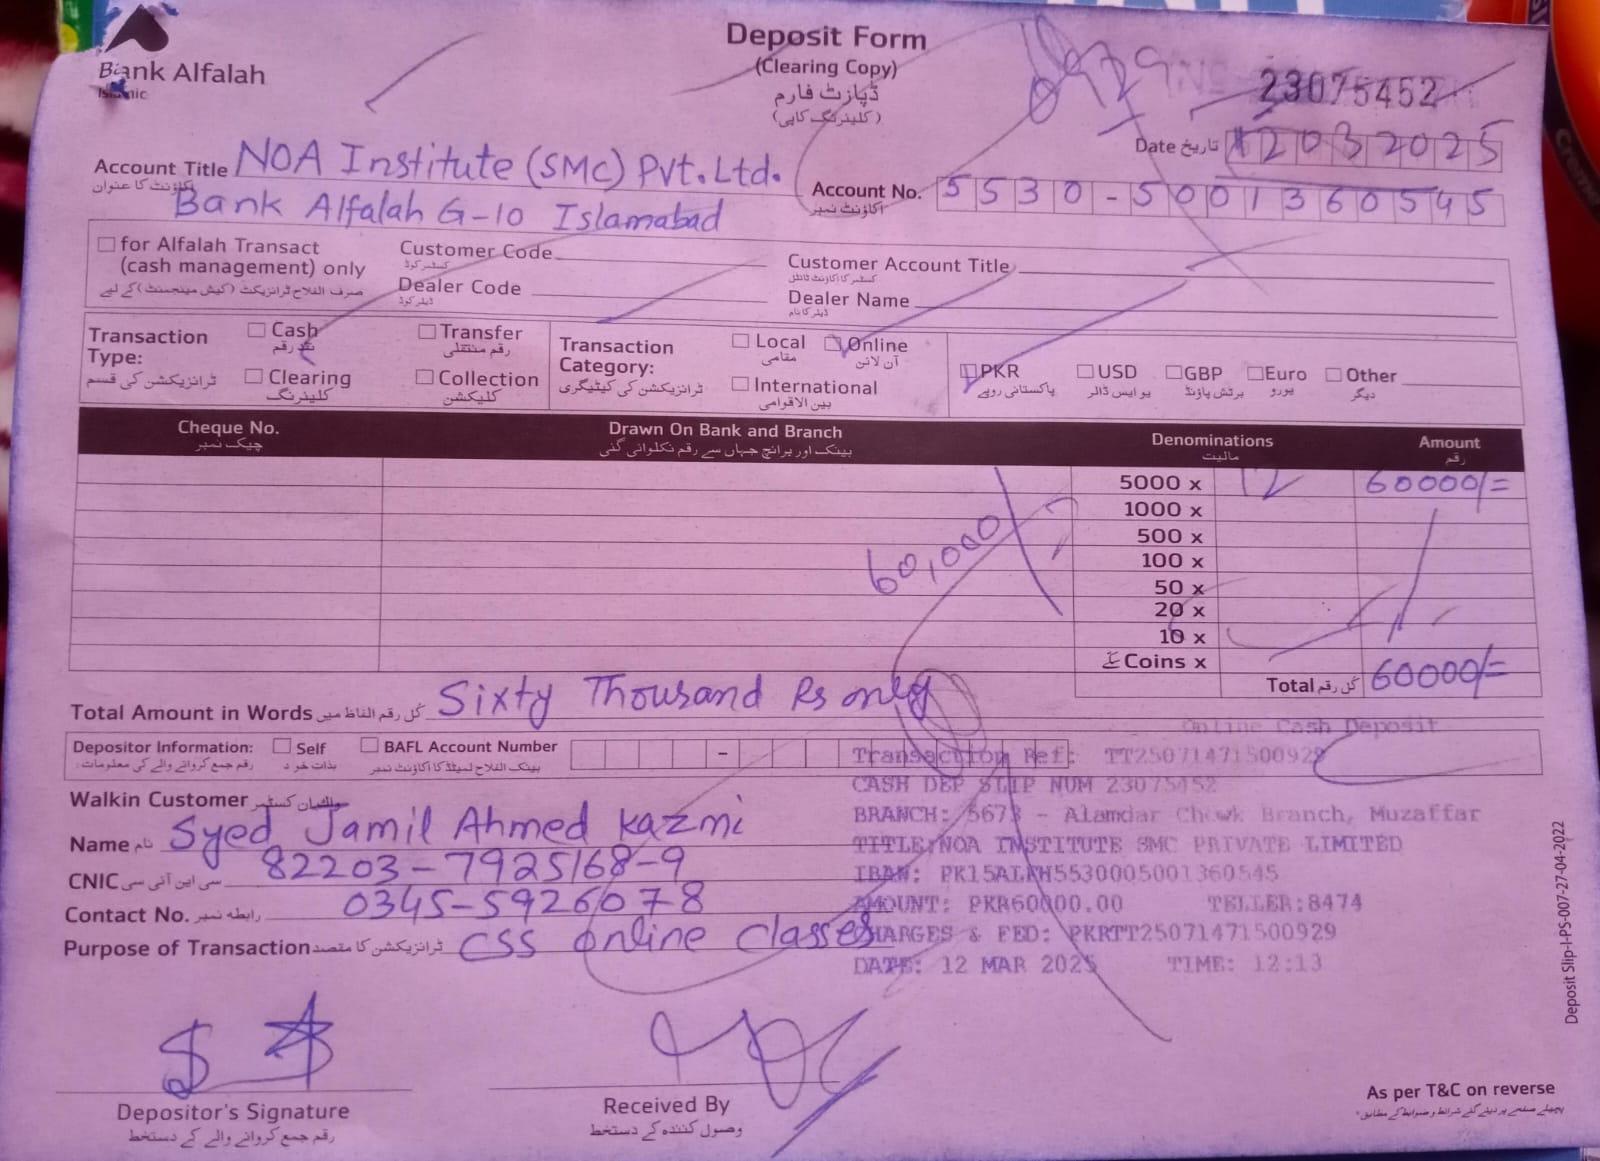 Bank Alfalah
Islamic
Deposit Form
(Clearing Copy)
ڈپازٹ فارم
(کلیئرنگ کاپی)
23075452
Date تاریخ 12032025
Account Title NOA Institute (SMC) Pvt. Ltd.
اکاؤنٹ کا عنوان
Bank Alfalah G-10 Islamabad
Account No. 5530-5001360545
اکاؤنٹ نمبر
for Alfalah Transact
(cash management) only
صرف الفلاح ٹرانزیکٹ (کیش مینجمنٹ) کے لیے
Customer Code
کسٹمر کوڈ
Customer Account Title
کسٹمر کا اکاؤنٹ ٹائٹل
Dealer Code
ڈیلر کوڈ
Dealer Name
ڈیلر کا نام
Transaction Type:
ٹرانزیکشن کی قسم
Cash نقد رقم
Transfer رقم منتقلی
Clearing کلیئرنگ
Collection کلیکشن
Transaction Category:
ٹرانزیکشن کی کیٹیگری
Local مقامی
Online آن لائن
International بین الاقوامی
PKR پاکستانی روپے
USD یو ایس ڈالر
GBP برٹش پاؤنڈ
Euro یورو
Other دیگر
Cheque No. Drawn On Bank and Branch Denominations Amount
چیک نمبر بینک اور برانچ جہاں سے رقم نکلوائی گئی مالیت رقم
5000 x 12 60000/=
1000 x
500 x
60,000/
100 x
50 x
20 x
10 x
سکے Coins x
Total کل رقم 60000/=
Total Amount in Words کل رقم الفاظ میں Sixty Thousand Rs only
Online Cash Deposit
Depositor Information: Self BAFL Account Number
رقم جمع کروانے والے کی معلومات: بذات خود بینک الفلاح لمیٹڈ کا اکاؤنٹ نمبر
Transaction Ref: TT25071471500929
CASH DEP SLIP NUM 23075452
BRANCH: 5673 - Alamdar Chowk Branch, Muzaffar
TITLE: NOA INSTITUTE SMC PRIVATE LIMITED
IBAN: PK15ALFH5530005001360545
AMOUNT: PKR60000.00 TELLER:8474
CHARGES & FED: PKRTT25071471500929
DATE: 12 MAR 2025 TIME: 12:13
Walkin Customer واک ان کسٹمر
Name نام Syed Jamil Ahmed Kazmi
CNIC سی این آئی سی 82203-7925168-9
Contact No. رابطہ نمبر 0345-5926078
Purpose of Transaction ٹرانزیکشن کا مقصد CSS online classes
Depositor's Signature
رقم جمع کروانے والے کے دستخط
Received By
وصول کنندہ کے دستخط
As per T&C on reverse
پچھلے صفحے پر دیئے گئے شرائط و ضوابط کے مطابق
Deposit Slip-I-PS-007-27-04-2022